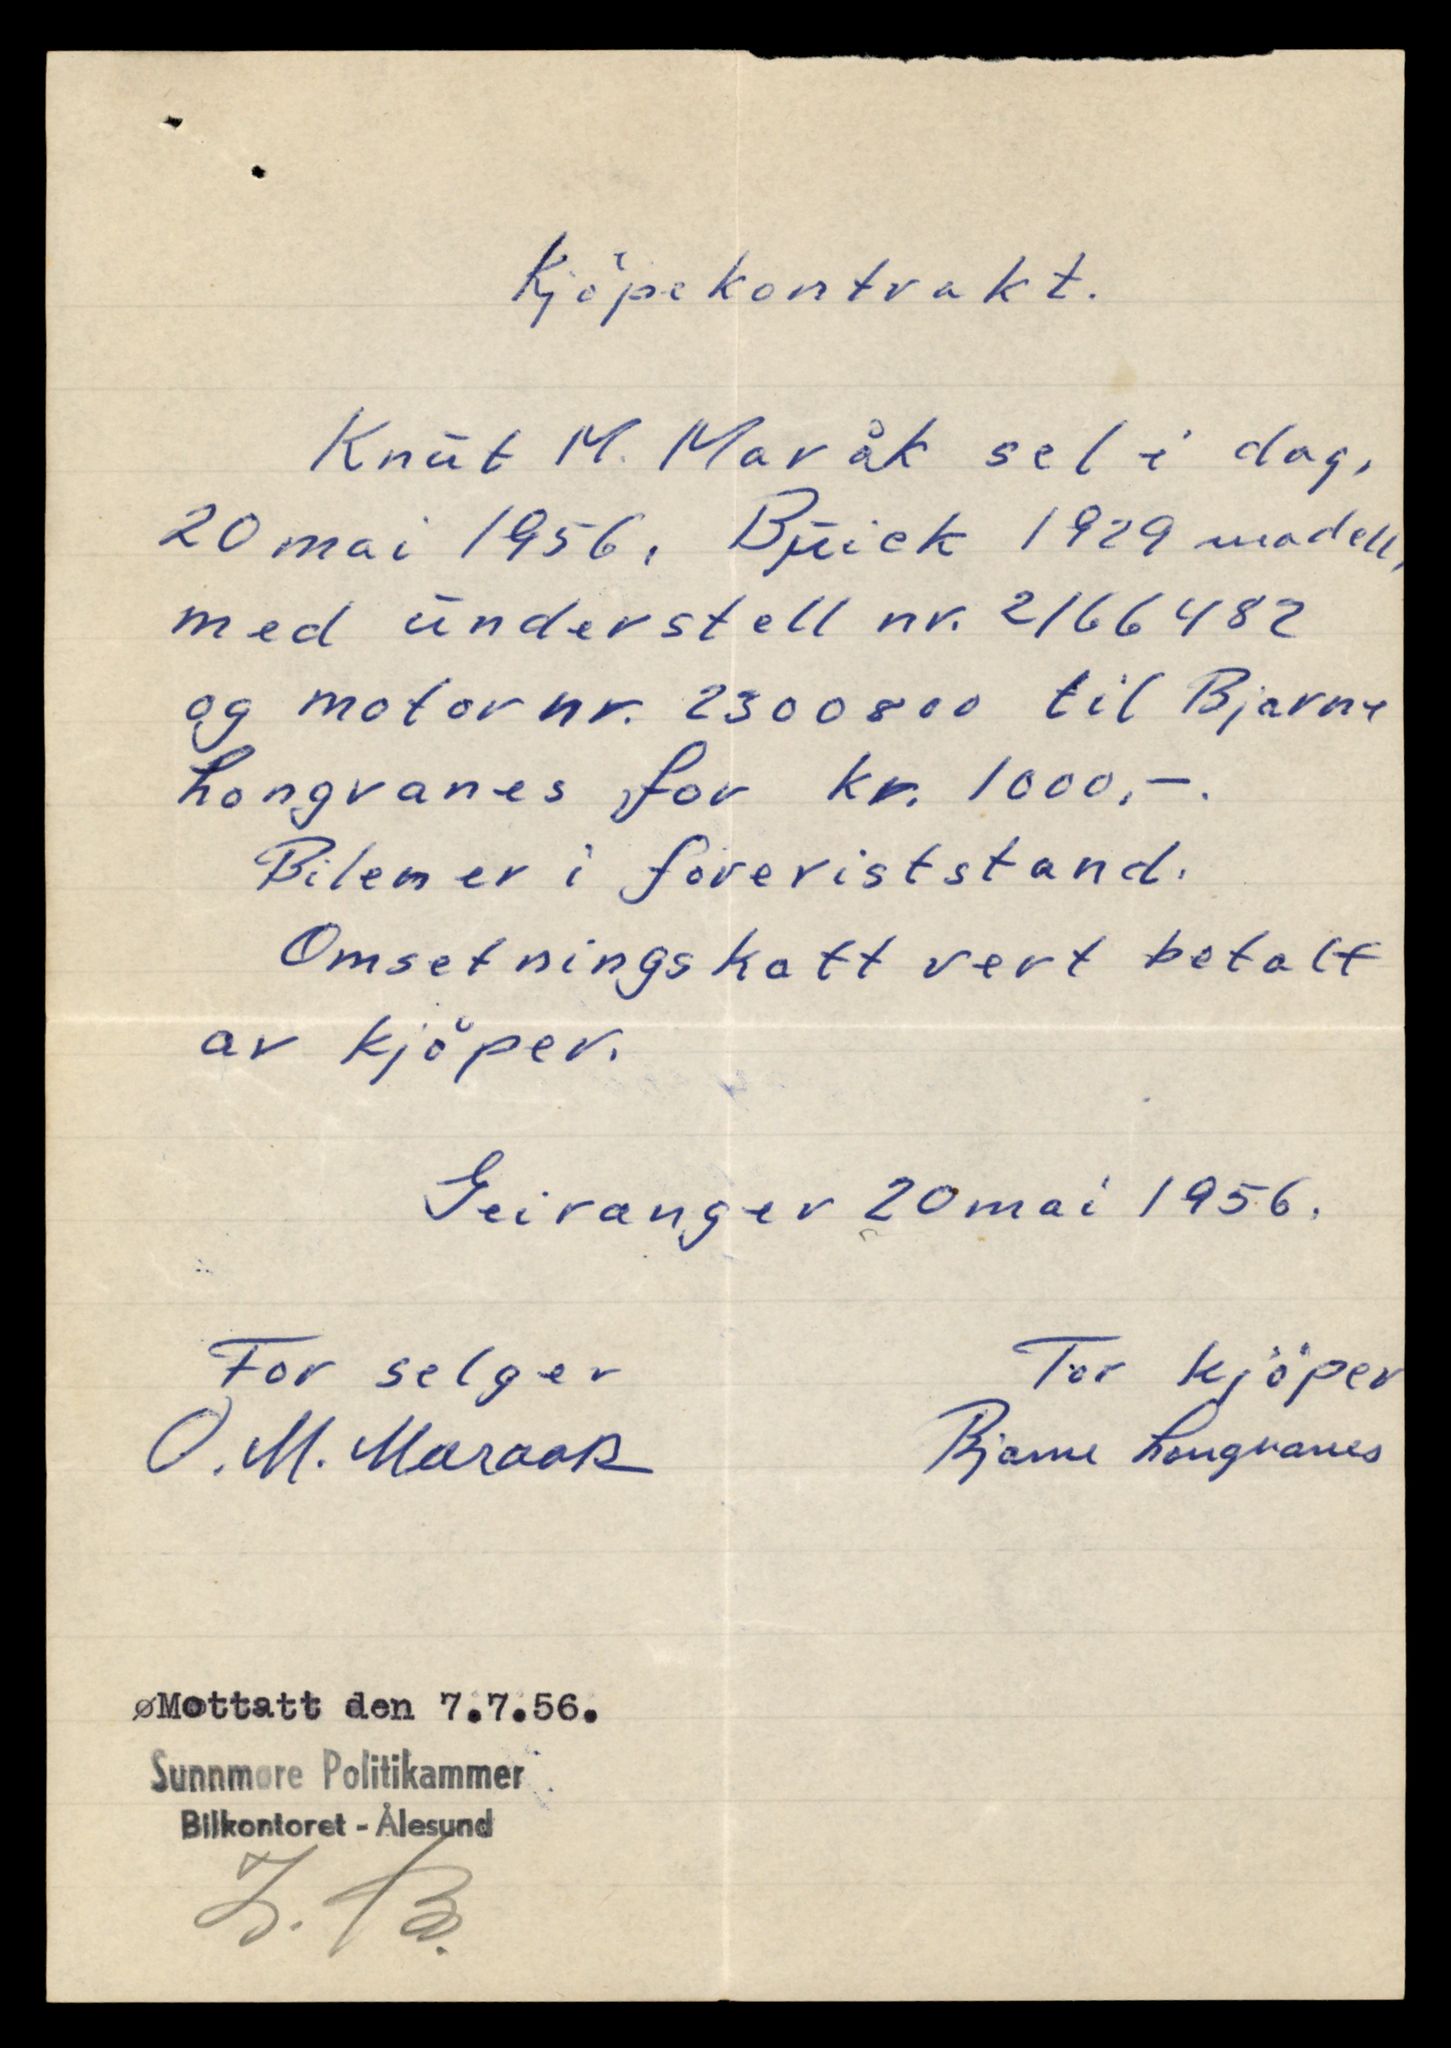 Kjöpekontrakt.
Knut M. Maråk sel i dag,
20 mai 1956, Buick 1929 modell,
med understell nr. 2166482
og motor nr. 2300800 til Bjarne
Longvanes for kr. 1000,-.
Bilen er i föreriststand.
Omsetningskatt vert betalt
av kjöper.
Geiranger 20 mai 1956.
For selger
For kjöper
O. M. Maraak
Bjarne Longvanes
øMottatt den 7.7.56.
Sunnmøre Politikammer
Bilkontoret - Ålesund